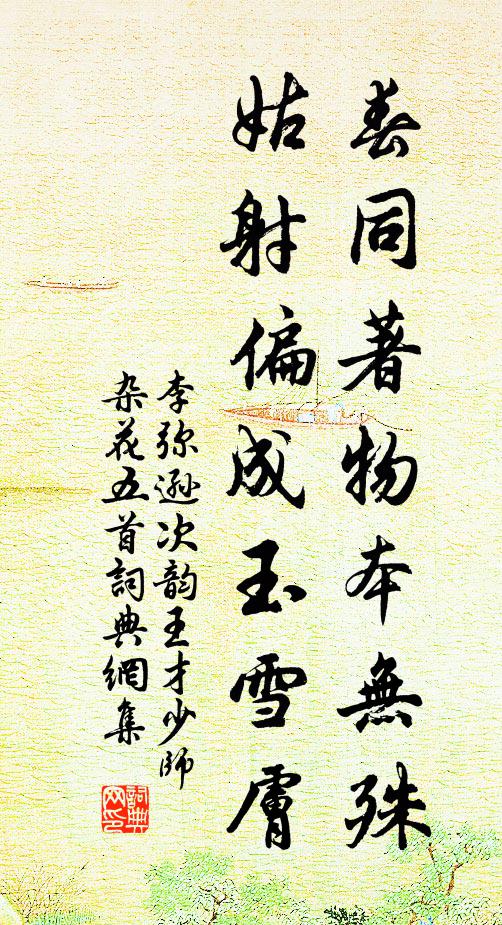 春同著物本無殊
姑射偏成玉雪膚
李弥遜次韵王才少師
杂花五首詞典網集
詞典网印